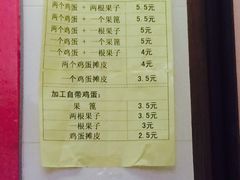 两个鸡蛋 + 两根果子 5.5元
两个鸡蛋 + 一个果篦 5.5元
两个鸡蛋 + 一根果子 5元
一个鸡蛋 + 一个果篦 5元
一个鸡蛋 + 一根果子 4元
两个鸡蛋摊皮 4元
一个鸡蛋摊皮 3.5元
加工自带鸡蛋：
果 篦 3.5元
两根果子 3.5元
一根果子 3元
鸡蛋摊皮 2.5元